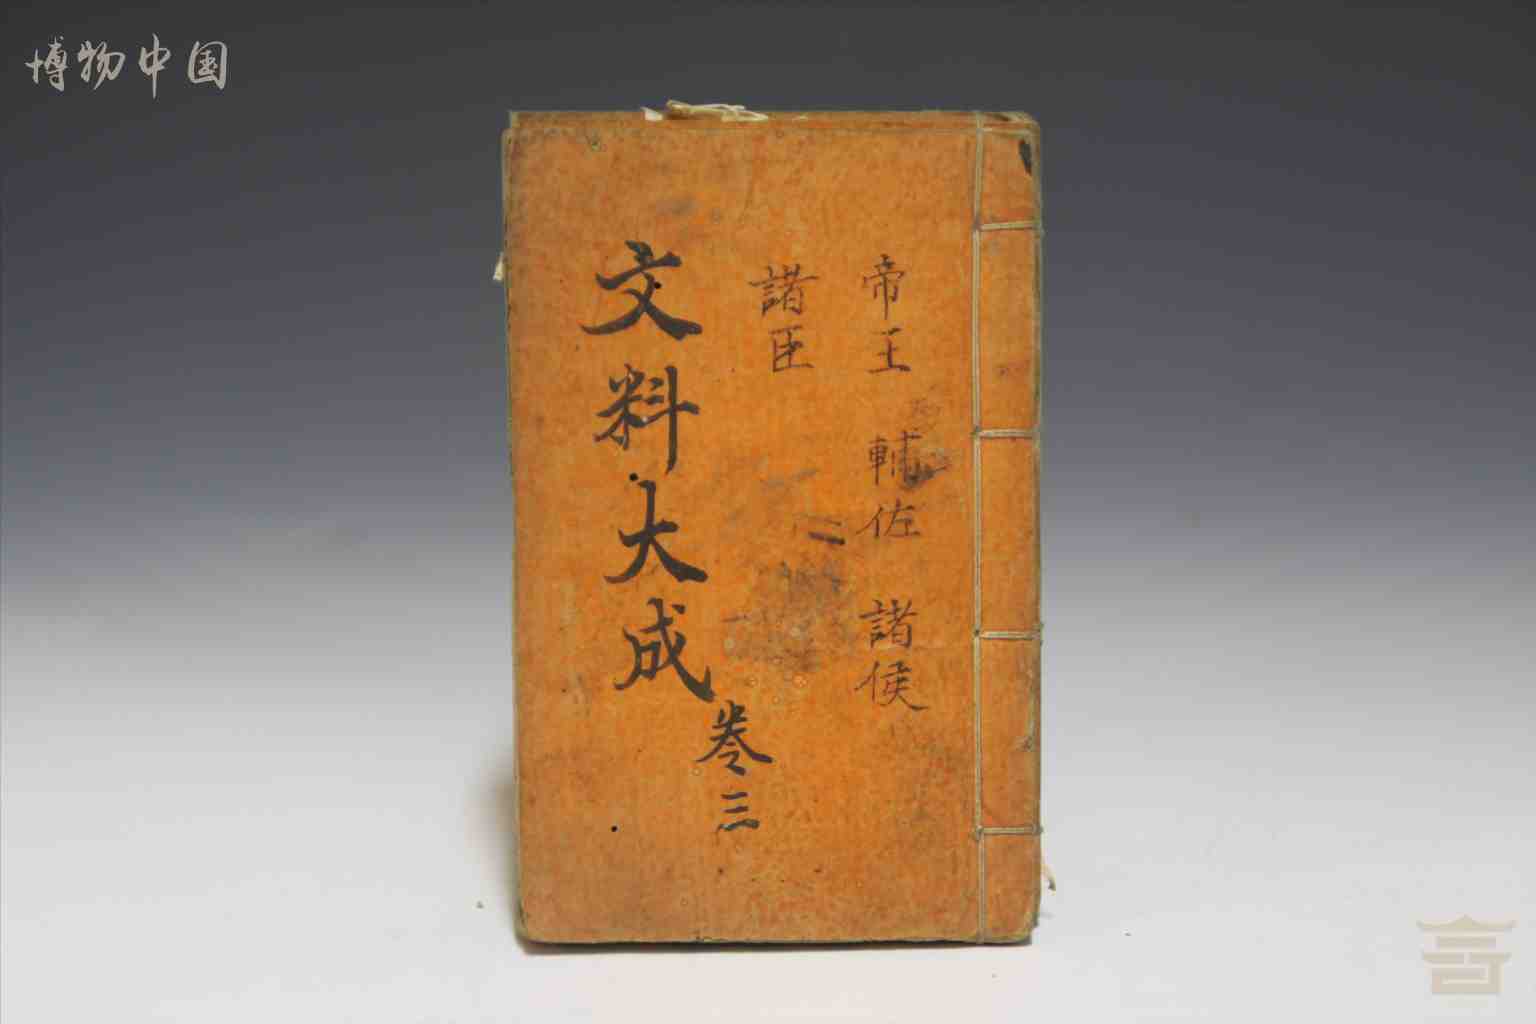 博物中国
帝王 輔佐 諸侯
諸臣
文料大成
卷三